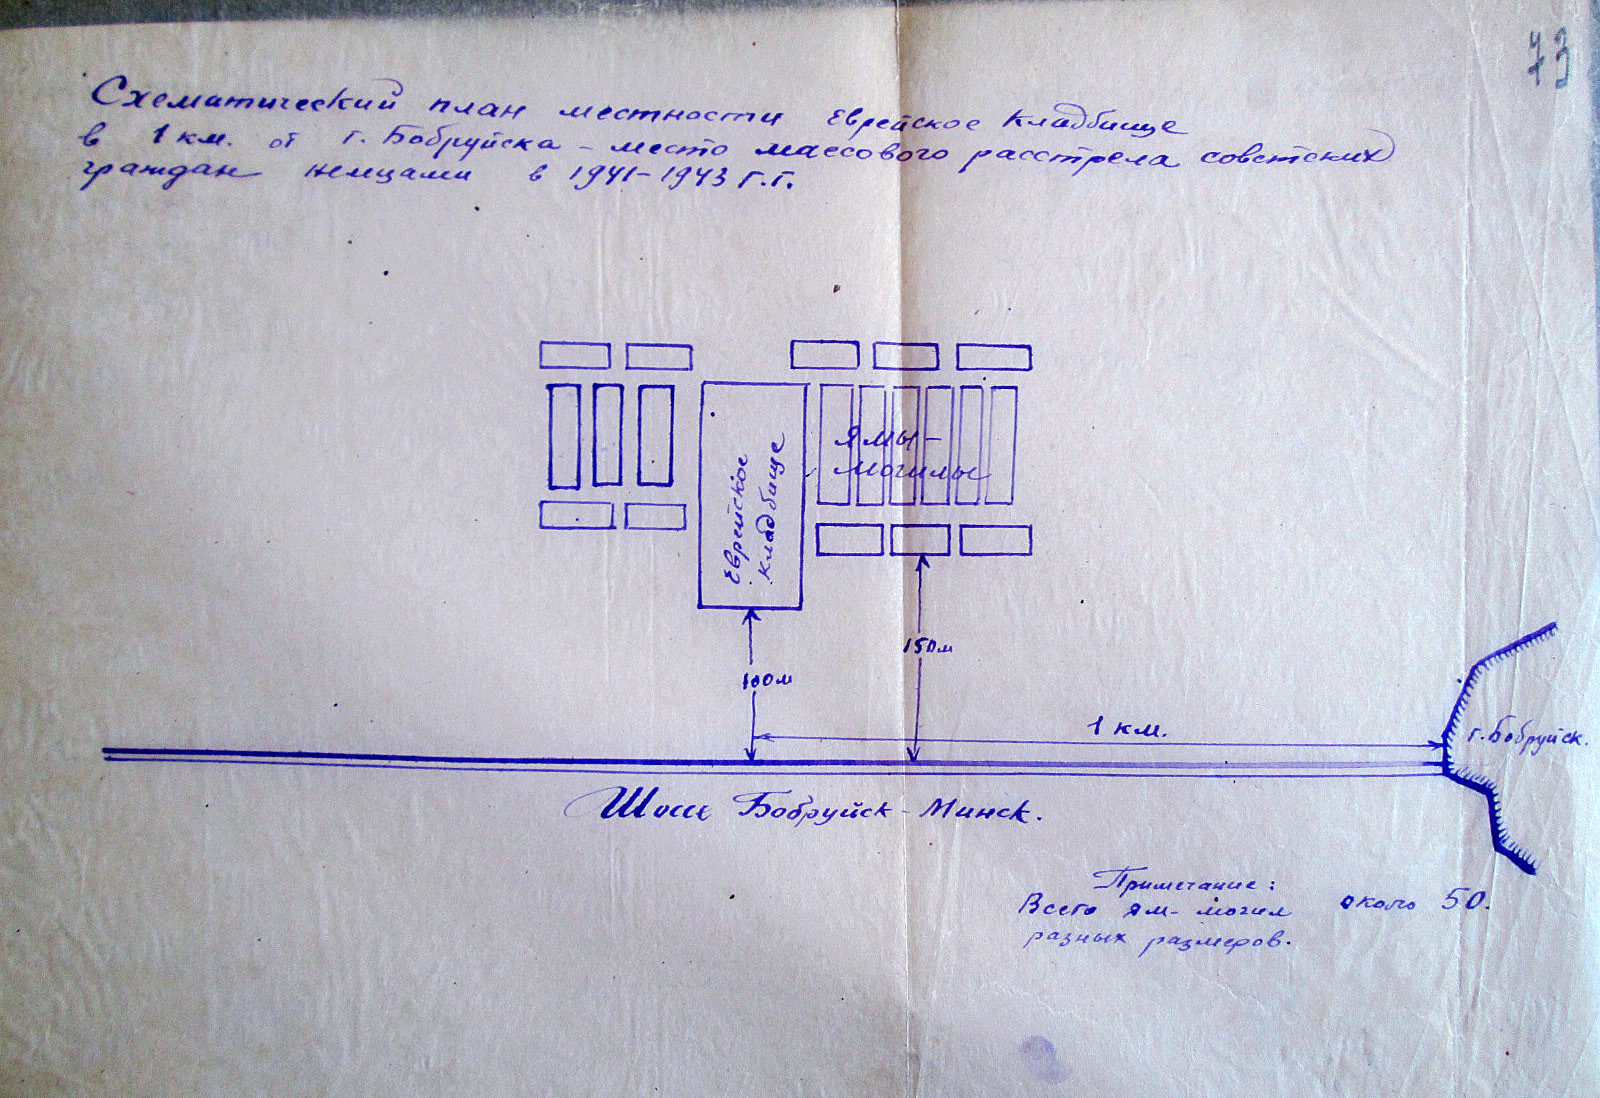 73
Схематический план местности Еврейское Кладбище
в 1 км. от г. Бобруйска – место массового расстрела советских
граждан немцами в 1941–1943 г.г.
Ямы–
могилы
Еврейское
кладбище
150м
100м
1 км.
г. Бобруйск.
Шоссе Бобруйск – Минск.
Примечание:
Всего ям-могил около 50.
разных размеров.